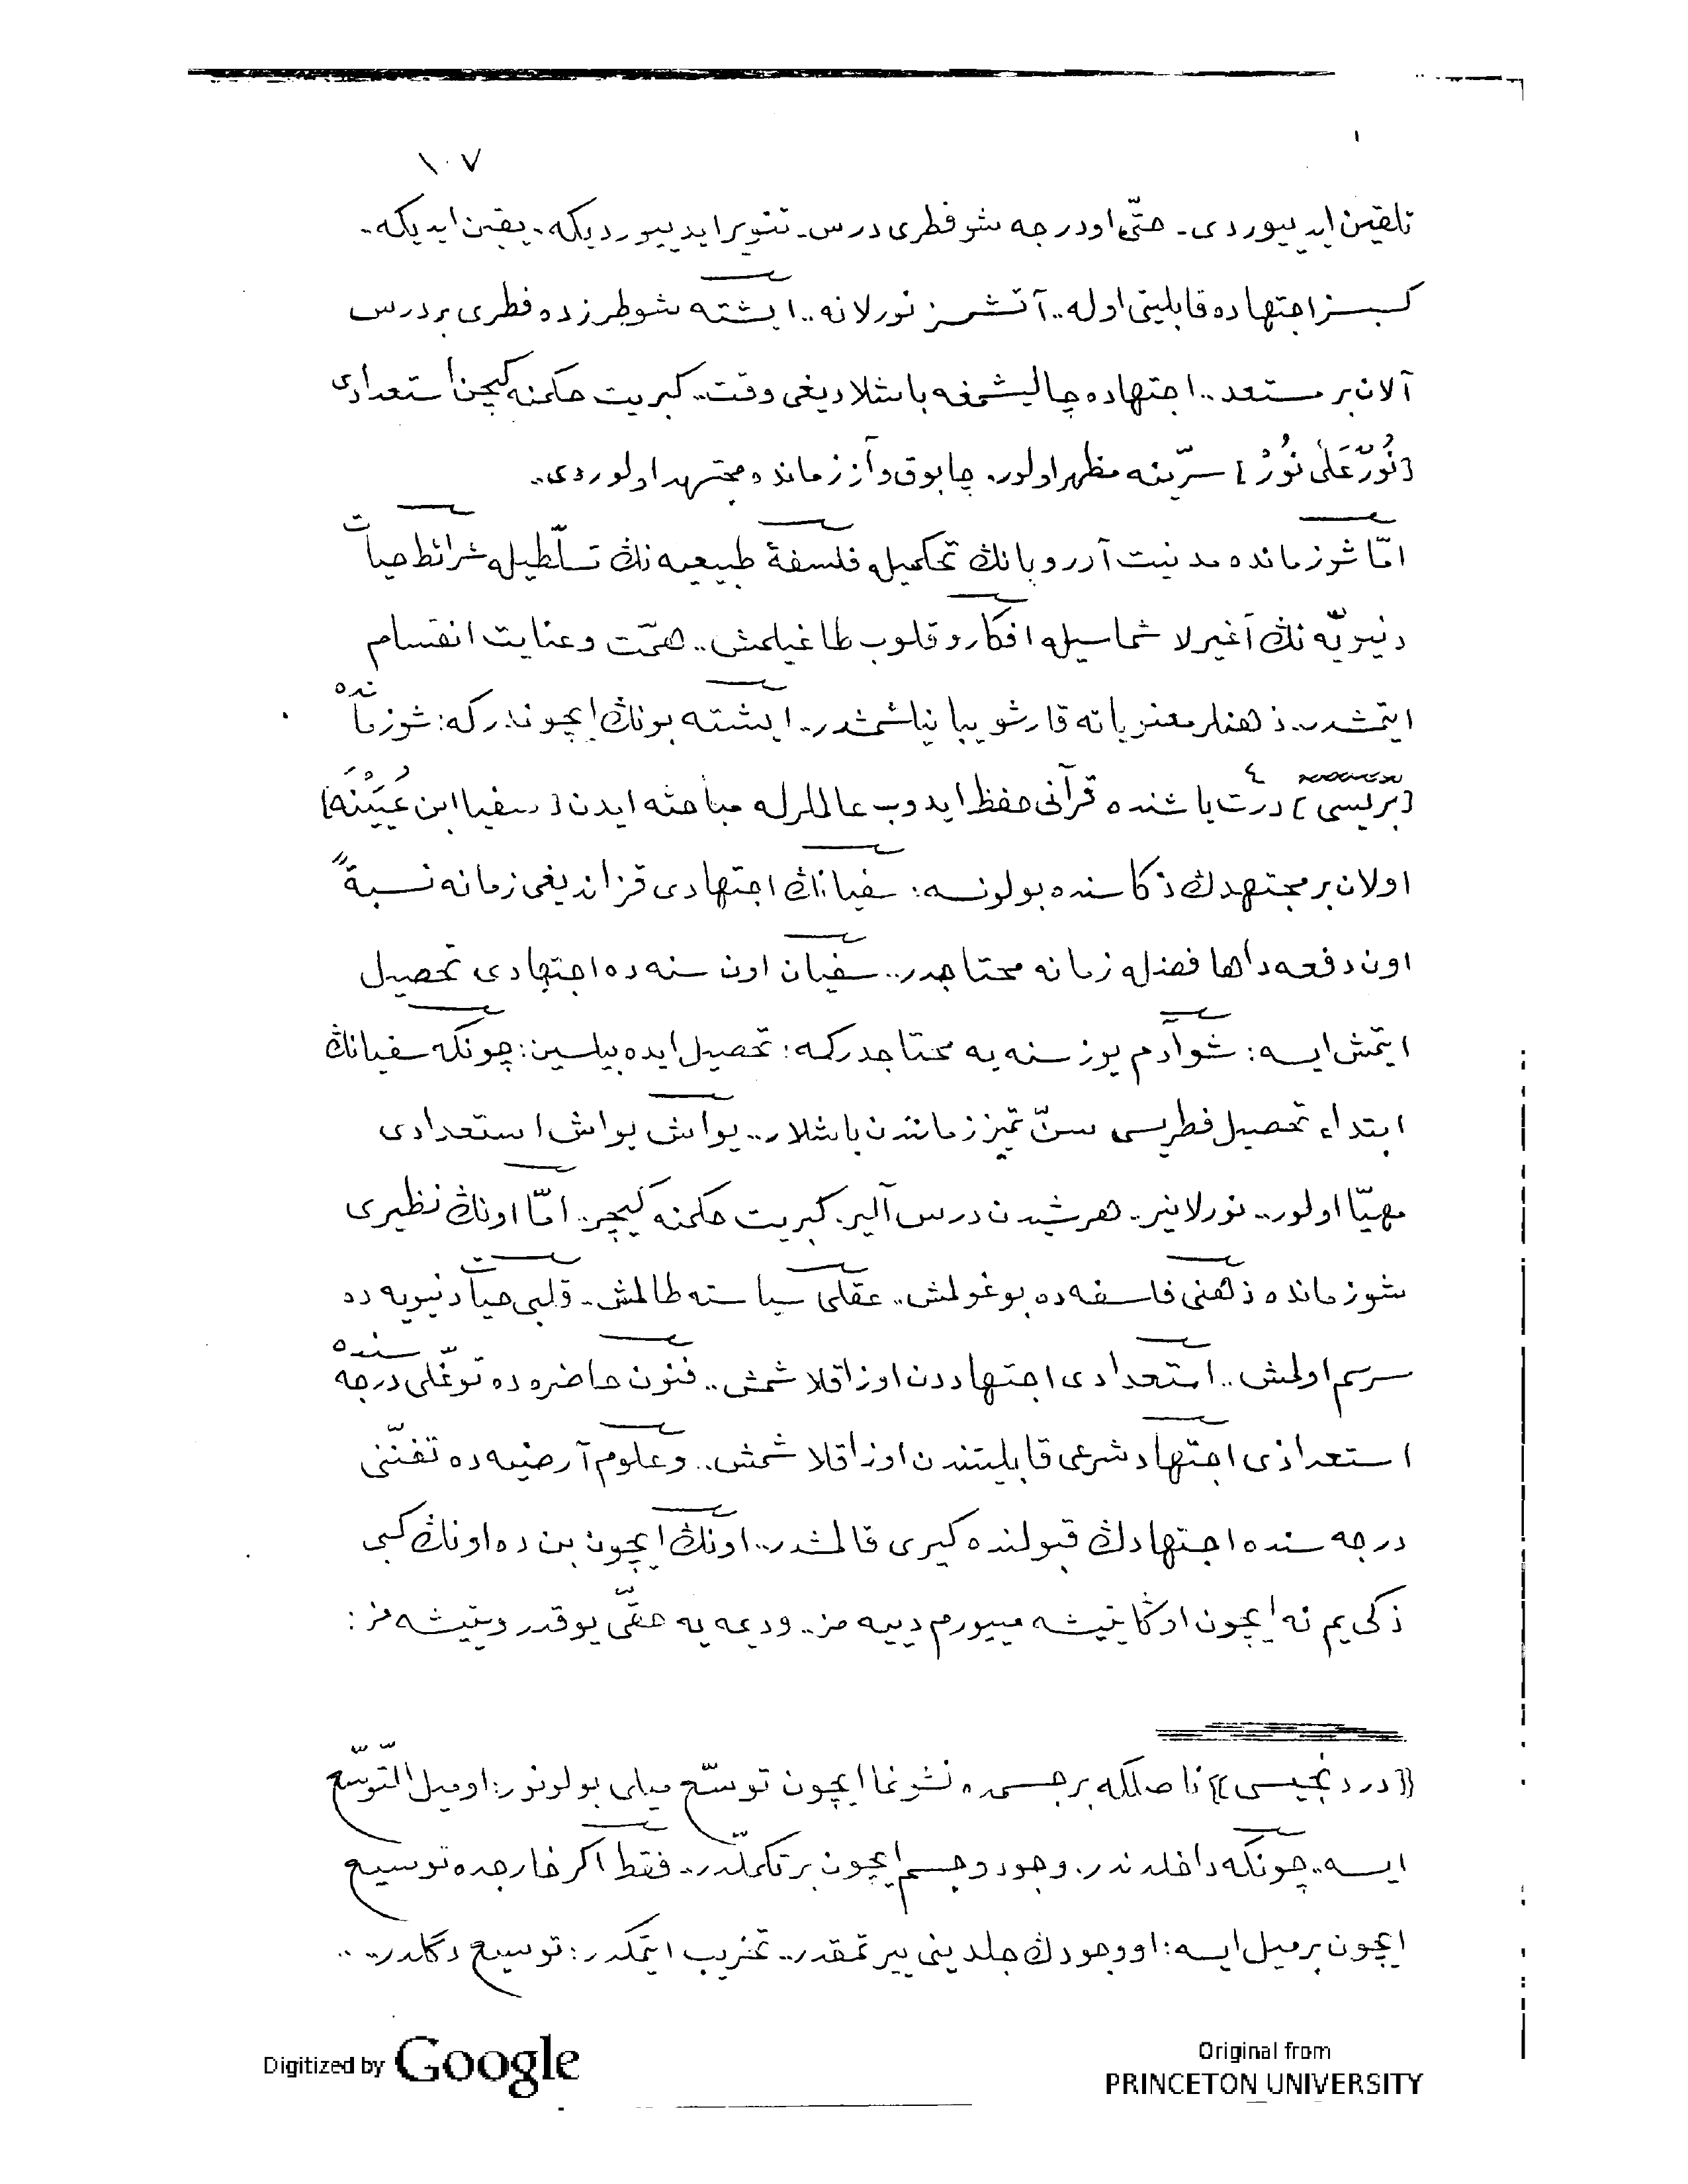 ١٠٧
تلقين ايدييوردى. حتّى او درجه شو فطرى درس. تنوير ايدييورديكه. يقين ايديكه.
كسبسز اجتهاده قابليتى اوله.. آتشسز نورلانه.. ايشته شو طرزده فطرى بر درس
آلان بر مستعد.. اجتهاده چاليشمغه باشلاديغى وقت.. كبريت حكمنه كچن استعدادى
[نُورٌ عَلٰى نُورٌ] سرّينه مظهر اولور. چابوق و آز زمانده مجتهد اولوردى..
امّا شو زمانده مدنيت آوروپانڭ تحكميله فلسفۀ طبيعيه نڭ تسلّطيله شرائط حيات
دنيويّه نڭ آغيرلاشماسيله افكار و قلوب طاغيلمش.. همّت و عنايت انقسام
ايتمشدر.. ذهنلر معنوياته قارشو يبانيلشمشدر.. ايشته بونڭ ايچوندركه: شو زمانده
[بريسى] درت ياشنده قرآنى حفظ ايدوب عالملرله مباحثه ايدن [سفيا ابن عُيَيْنَه]
٤
اولان بر مجتهدڭ ذكاسنده بولونسه: سفيانڭ اجتهادى قزانديغى زمانه نسبةً
اون دفعه داها فضله زمانه محتاجدر.. سفيان اون سنه ده اجتهادى تحصيل
ايتمش ايسه: شو آدم يوز سنه يه محتاجدركه: تحصيل ايده بيلسين: چونكه سفيانڭ
ابتداء تحصيل فطريسى سنّ تميز زمانندن باشلار.. يواش يواش استعدادى
مهيّا اولور.. نورلانير. هر شيدن درس آلير. كبريت حكمنه كيچر. امّا اونڭ نظيرى
شو زمانده ذهنى فلسفه ده بوغولمش.. عقلى سياسته طالمش.. قلبى حيات دنيويه ده
سرسم اولمش.. استعدادى اجتهاددن اوزاقلاشمش.. فنون حاضره ده توغّلى درجه سنده
استعدادى اجتهاد شرعى قابليتندن اوزاقلاشمش.. و علوم آرضيه ده تفنّنى
درجه سنده اجتهادڭ قبولنده كيرى قالمشدر.. اونڭ ايچون بن ده اونڭ كبى
ذكى يم نه ايچون اوڭا يتيشه مييورم دييه مز.. و ديمه يه حقّى يوقدر و يتيشه مز:
[[دردنجيسى]] ناصلكه بر جسمده نشو نما ايچون توسّع ميلى بولونور: او ميل التوسّع
ايسه.. چونكه داخلدندر. وجود و جسم ايچون بر تكمّلدر.. فقط اكر خارجده توسيع
ايچون بر ميل ايسه: او وجودڭ جلدينى ييرتمقدر.. تخريب ايتمكدر: توسيع دگلدر.. ..
Digitized by Google
Original from
PRINCETON UNIVERSITY